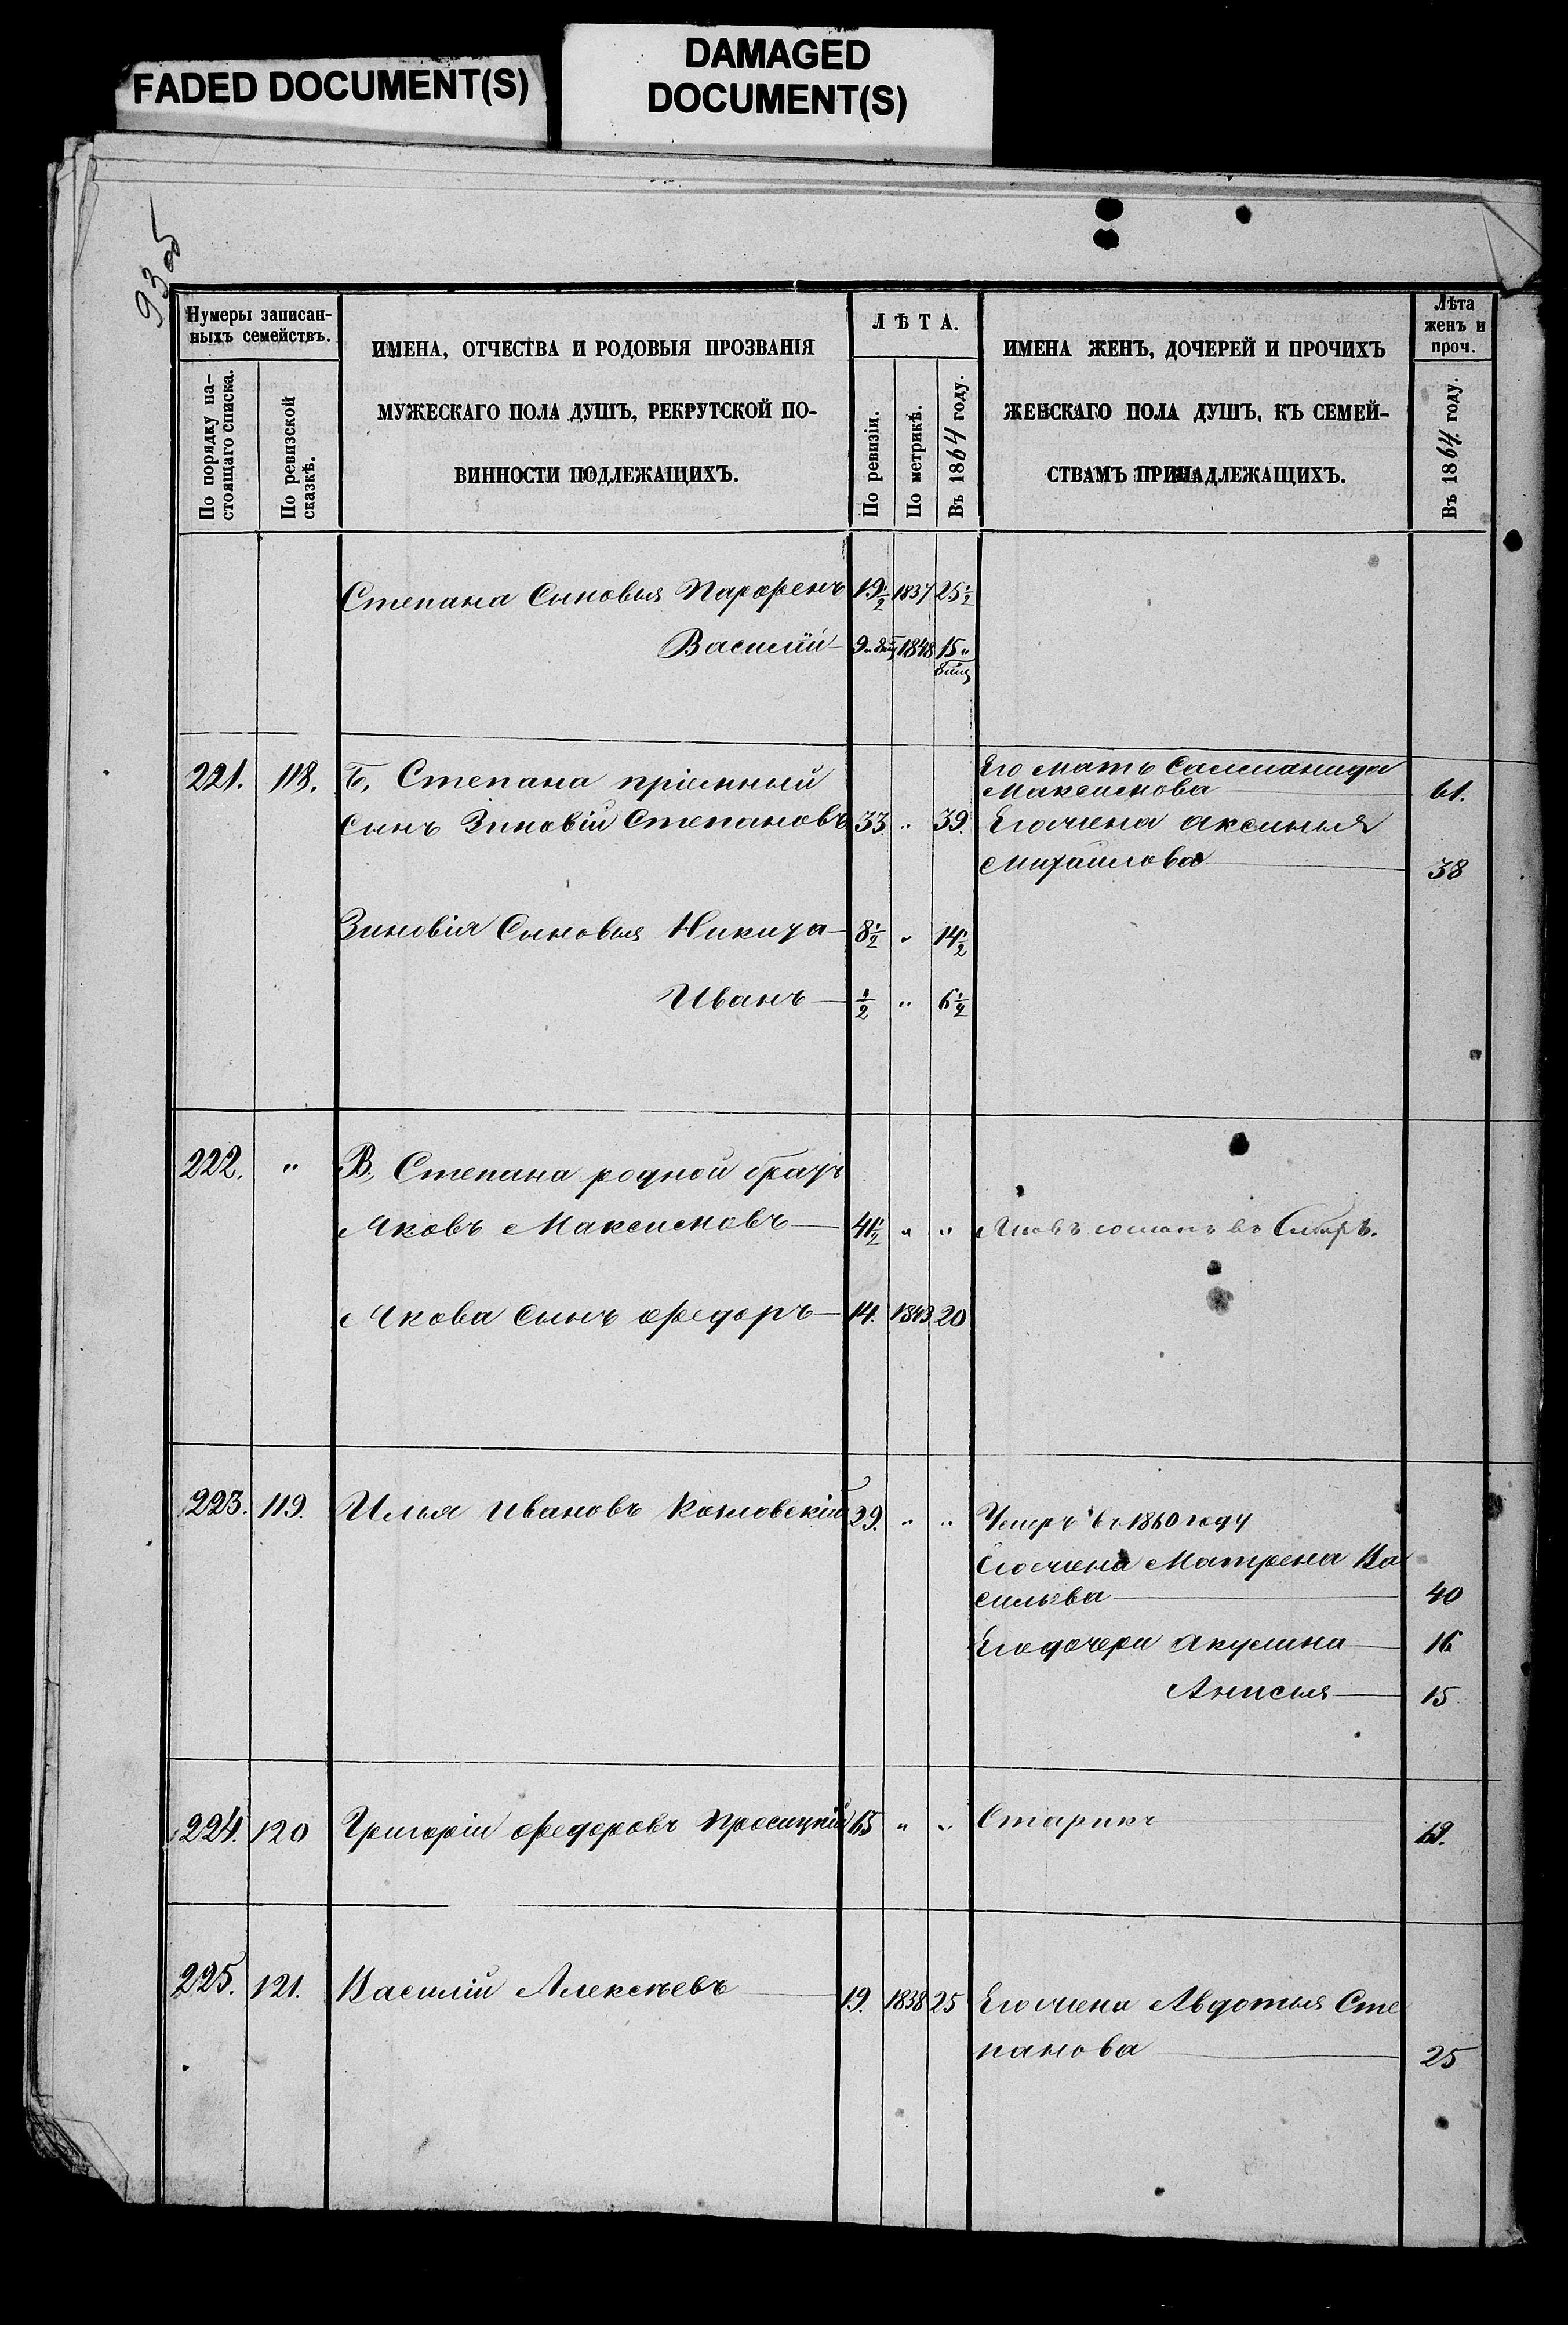 FADED DOCUMENT(S)
DAMAGED
DOCUMENT(S)
93 об
Нумеры записан-
ныхъ семействъ.
По порядку на-
стоящаго списка.
По ревизской
сказкѣ.
ИМЕНА, ОТЧЕСТВА И РОДОВЫЯ ПРОЗВАНІЯ
МУЖЕСКАГО ПОЛА ДУШЪ, РЕКРУТСКОЙ ПО-
ВИННОСТИ ПОДЛЕЖАЩИХЪ.
ЛѢТА.
По ревизіи.
По метрикѣ.
Въ 1864 году.
ИМЕНА ЖЕНЪ, ДОЧЕРЕЙ И ПРОЧИХЪ
ЖЕНСКАГО ПОЛА ДУШЪ, КЪ СЕМЕЙ-
СТВАМЪ ПРИНАДЛЕЖАЩИХЪ.
Лѣта
женъ и
проч.
Въ 1864 году.
Степана Сыновья Парфенъ 19½ 1837 25½
Василій 9 1848 15
221. 118. Б, Степана пріемный Его мать
Максимова 61.
сынъ Зиновій Степановъ 33 „ 39. Его жена Аксинья
Михайлова 38
Зиновія Сыновья Никита 8½ „ 14½
Иванъ ½ „ 6½
222. „ В, Степана родной братъ
Яковъ Максимовъ 41½ „ „ сосланъ въ Сибирь.
Якова сынъ Федоръ 14. 1843 20
223. 119. Илья Ивановъ Козловскій 29. „ „ Умеръ въ 1860 году
Его жена Матрена Ва
сильева 40
Его дочери Акулина 16
Анисья 15
224. 120 Григорій Федоровъ 65 „ „ Старикъ
225. 121. Василій Алексѣевъ 19. 1838 25 Его жена Авдотья Сте
панова 25